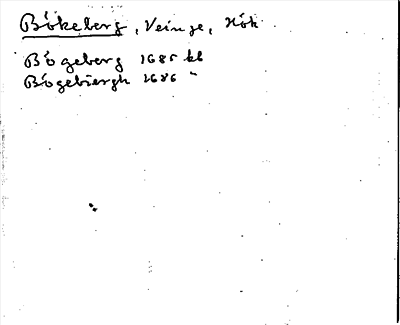 Bökeberg, Veinge, Hök
Bögeberg 1685 kb
Bögebiergh 1686 "